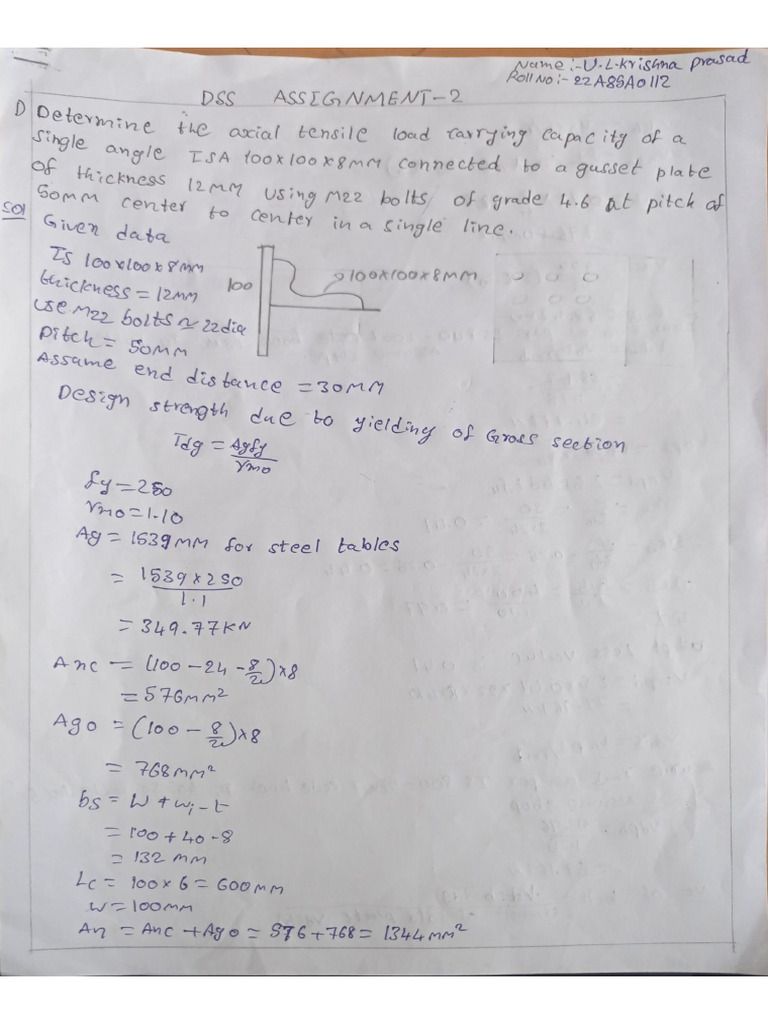 Name:-U.L.Krishna prasad
Roll No:- 22A85A0112
DSS ASSIGNMENT-2
1) Determine the axial tensile load carrying capacity of a
single angle ISA 100x100x8MM connected to a gusset plate
of thickness 12MM using M22 bolts of grade 4.6 at pitch of
50MM center to center in a single line.
Sol
Given data
IS 100x100x8MM
thickness = 12MM
use M22 bolts ≈ 22dia
Pitch = 50MM
100
100x100x8MM
Assume end distance = 30MM
Design strength due to yielding of Gross section
Tdg = Agfy/γmo
fy = 250
γmo = 1.10
Ag = 1539MM for steel tables
= 1539x250/1.1
= 349.77KN
Anc = (100-24-8/2)x8
= 576MM²
Ago = (100-8/2)x8
= 768MM²
bs = W+wi-t
= 100+40-8
= 132 MM
Lc = 100x6 = 600MM
w = 100mm
An = Anc + Ago = 576+768 = 1344MM²